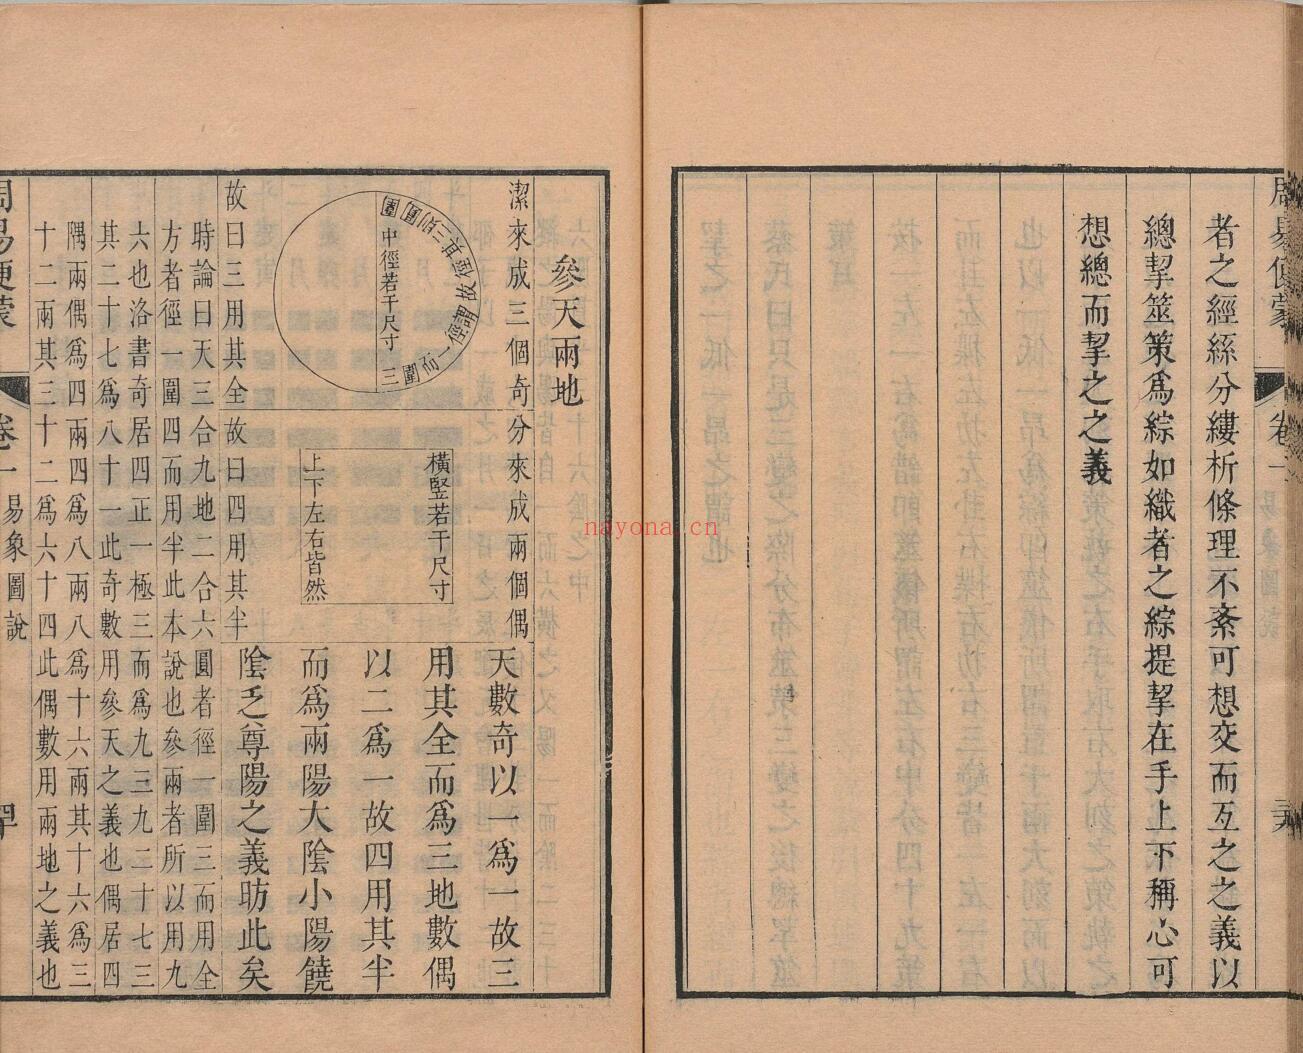 者之經絲分縷析條理不紊可想交而互之之義以
總挈筮策爲綜如織者之綜提挈在手上下稱心可
想總而挈之之義
參天兩地
潔來成三個奇
圍圓則三其徑故謂徑一而圍三
中徑若干尺寸
故曰三用其全
分來成兩個偶
橫竪若干尺寸
上下左右皆然
故曰四用其半
天數奇以一爲一故三
用其全而爲三地數偶
以二爲一故四用其半
而爲兩陽大陰小陽饒
陰乏尊陽之義昉此矣
時論曰天三合九地二合六圓者徑一圍三而用全
方者徑一圍四而用半此本說也參兩者所以用九
六也洛書奇居四正一極三而爲九三九二十七三
其二十七爲八十一此奇數用參天之義也偶居四
隅兩偶爲四兩四爲八兩八爲十六兩其十六爲三
十二兩其三十二爲六十四此偶數用兩地之義也
卷一
易象圖說
nayona.cn